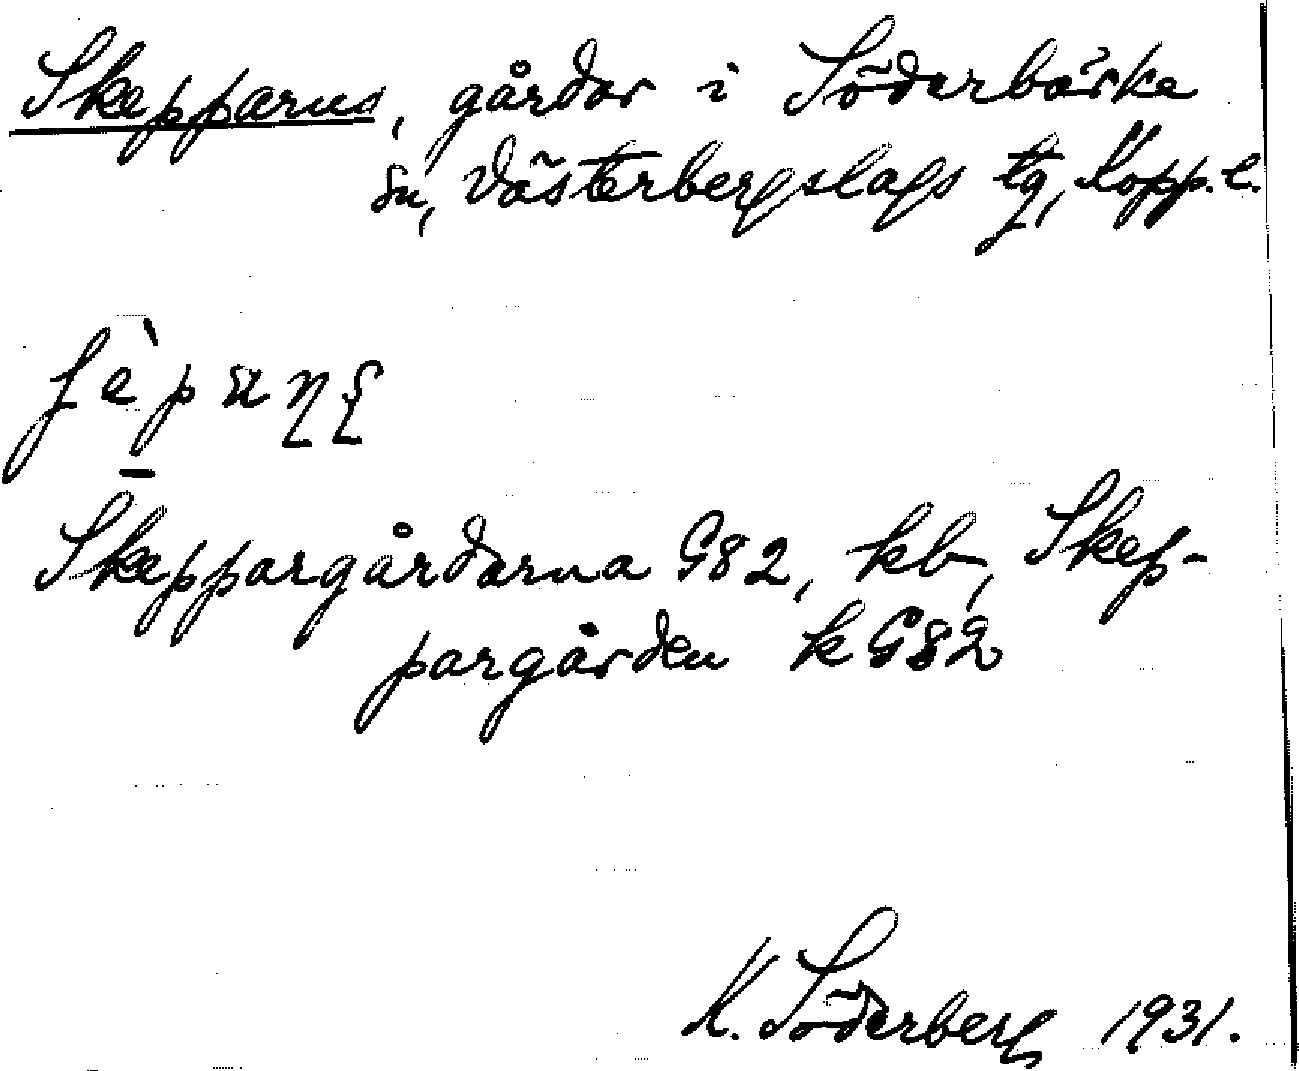 Skepparns, gårdar i Söderbärke
sn, Västerbergslags tg, Kopp. l.
Skeppargårdarna G82, kb, Skep-
pargården k G82
K. Söderberg 1931.